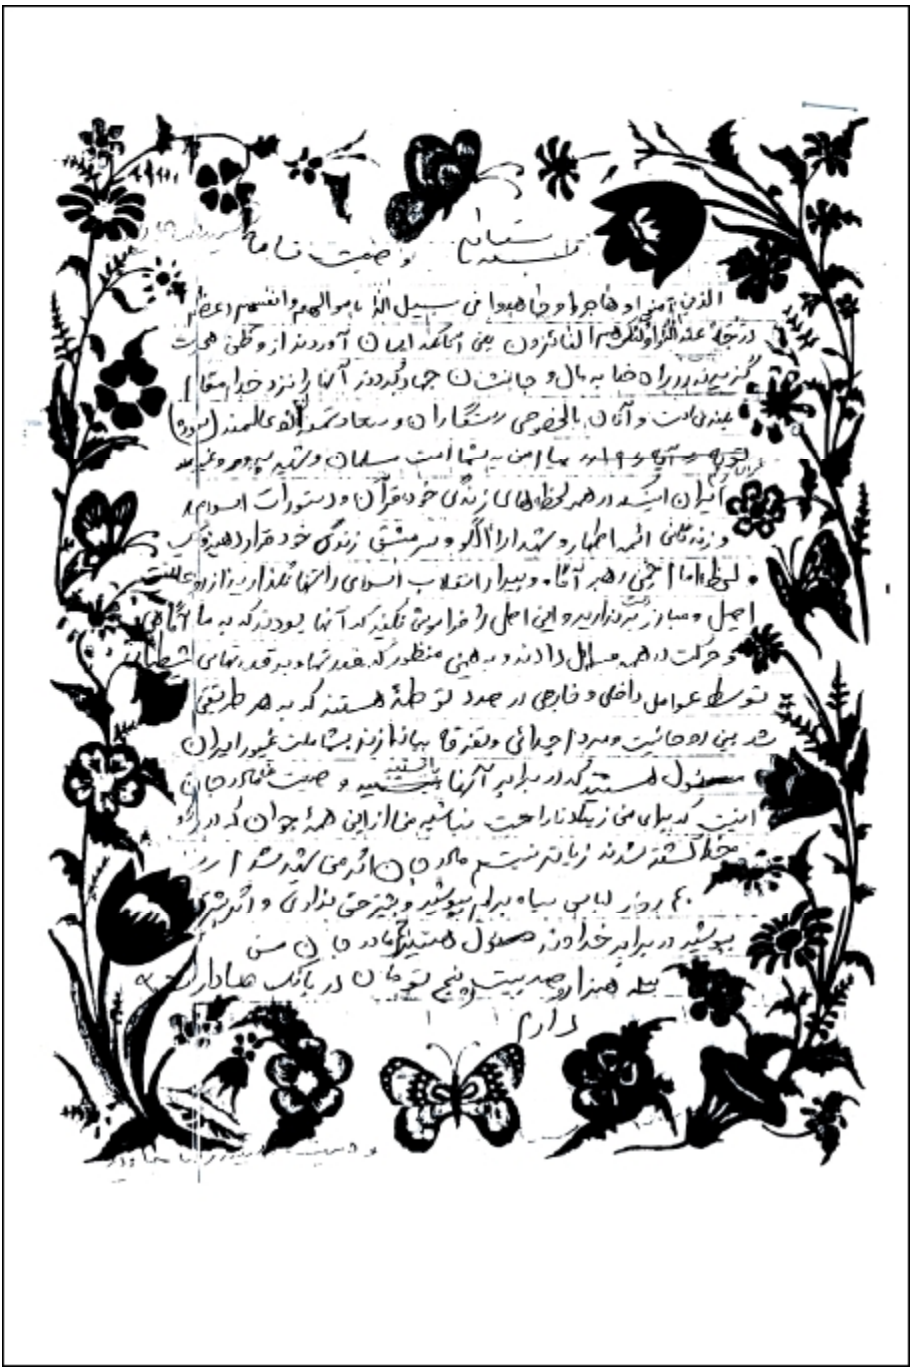 بسمه تعالی
وصیت نامه
الذین آمنوا و هاجروا و جاهدوا فی سبیل الله باموالهم و انفسهم اعظم
درجة عند الله و اولئک هم الفائزون یعنی آنانکه ایمان آوردند از وطن هجرت
گزیدند در راه خدا به مال و جانشان جهاد کردند آنها را نزد خدا مقام
بلندی است و آنان بالخصوص رستگاران و سعادتمند عالمند
پیام من به شما امت مسلمان و شهید پرور و غیور
ایران اینست در همه لحظه های زندگی خود قرآن و دستورات اسلام
و زندگی ائمه اطهار و شهدا را الگو و سرمشق زندگی خود قرار دهید و یک
لحظه امام خمینی رهبر آگاه و بیدار انقلاب اسلامی را تنها نگذارید از
اصیل و مبارز برندارید و این اصل را فراموش نکنید که آنها بودند که به ما آگاهی
و حرکت در همه مسایل دادند و به همین منظور که قدرتها و ابرقدرتهای
توسط عوامل داخلی و خارجی در صدد توطئه هستند که به هر طریقی
شده بین روحانیت و مردم جدائی و تفرقه بیاندازند بشما ملت غیور ایران
مسئول هستید که در برابر آنها بایستید و وصیت مادر جان
اینست که برای من زیاد ناراحت نباشید من از این همه جوان که در راه
خدا کشته شدند زیادتر نیستم مادر جان اگر من شهید شدم
۴۰ روز لباس سیاه برایم بپوشید و بیشتر حق نداری و اگر بیشتر
بپوشید در برابر خداوند مسئول هستید مادر جان من
هزار و صد بیست پنج تومان در بانک صادارت
دارم